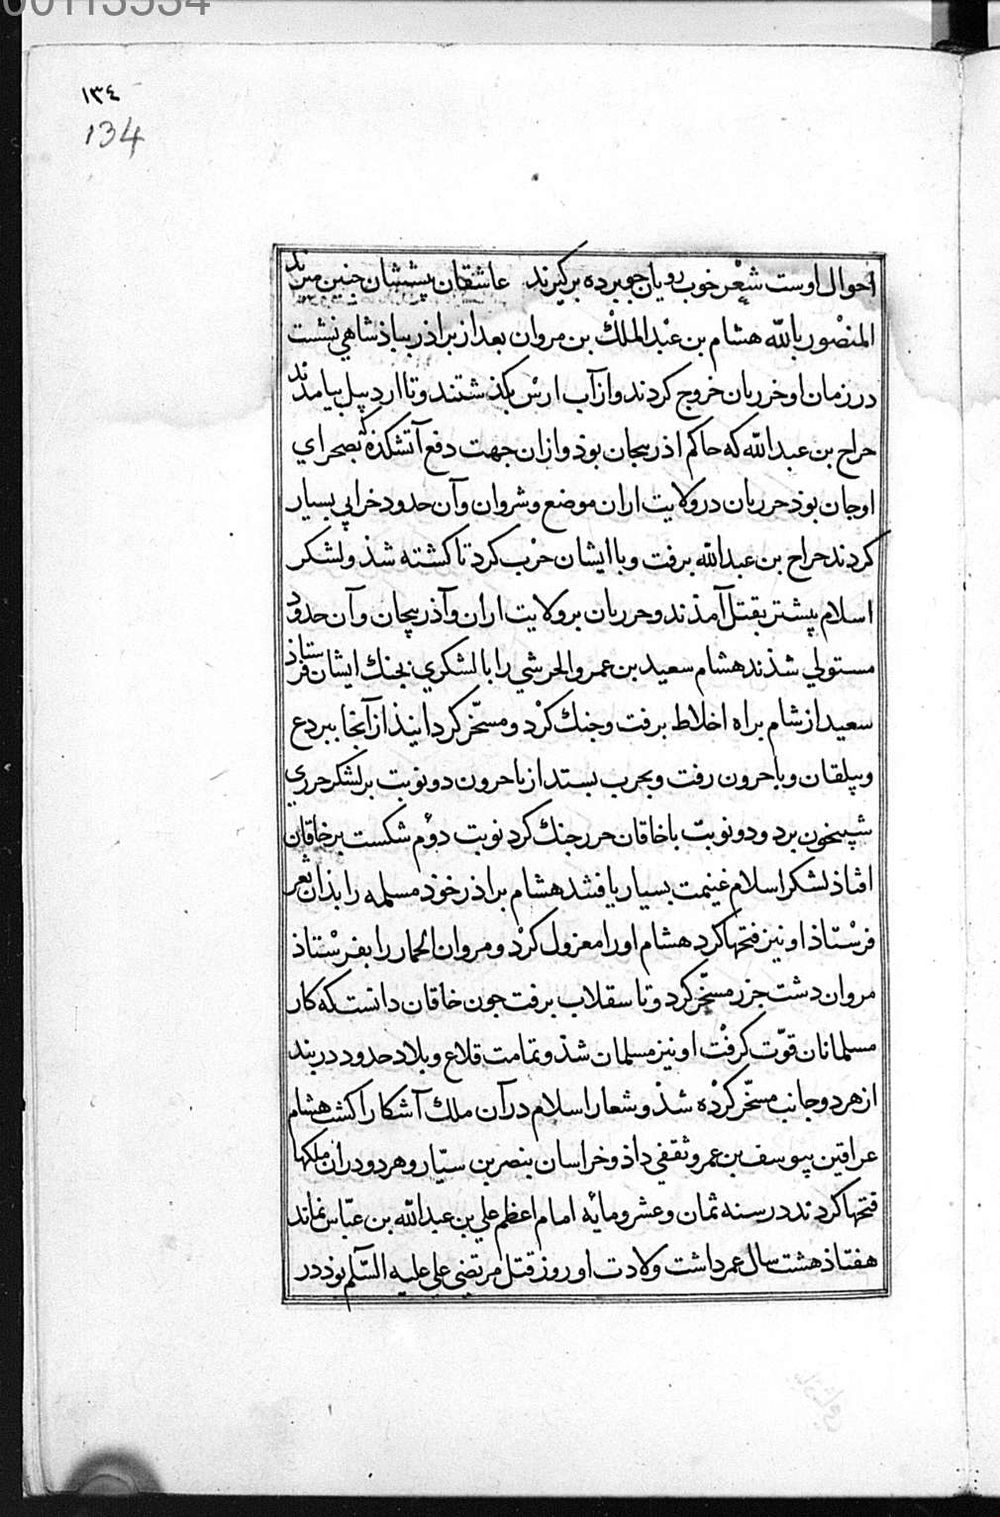 00113534
١٣٤
134
احوال اوست شعر خوب رویان جو برده برکیرند عاشقان پیششان جنین میرند
المنصور بالله هشام بن عبد الملک بن مروان بعد از براذر بباذشاهی نشست
در زمان او خزریان خروج کردند و از آب ارس بکذشتند و تا اردبیل بیامدند
جراح بن عبد الله که حاکم اذربیجان بوذ و ازان جهت دفع آتشکذه که بصحرای
اوجان بوذ حرریان در ولایت اران موضع و شروان وآن حدود خرابی بسیار
کردند جراح بن عبدالله برفت و با ایشان حرب کرد تا کشته شذ و لشکر
اسلام پیشتر بقتل آمذند و حرریان بر ولایت اران وآذربیجان وآن حدود
مستولی شذند هشام سعید بن عمرو الحرشی را با لشکری بجنک ایشان فرستاذ
سعید از شام براه اخلاط برفت و جنک کرد و مسخّر کردانیذ از آنجا ببردع
و بیلقان و باجرون رفت و بحرب بستد از باجرون دو نوبت بر لشکر حرری
شبیخون برد و دو نوبت با خاقان حرر جنک کرد نوبت دوم شکست بر خاقان
افتاذ لشکر اسلام غنیمت بسیار یافتند هشام براذر خوذ مسلمه را بذان ثغر
فرستاذ او نیز فتحها کرد هشام اورا معزول کرد و مروان الحمار را بفرستاذ
مروان دشت خزر مسخّر کرد و تا سقلاب برفت جون خاقان دانست که کار
مسلمانان قوّت کرفت او نیز مسلمان شذ و تمامت قلاع و بلاد حدود دربند
از هر دو جانب مسخّر کرده شذ و شعار اسلام در آن ملک آشکارا کشت هشام
عراقین بیوسف بن عمرو ثقفی داذ و خراسان بنصر بن سیّار و هر دو دران ملکها
فتحها کردند در سنه ثمان و عشر و مایه امام اعظم علی بن عبد الله بن عبّاس نماند
هفتاذ هشت سال عمر داشت ولادت او روز قتل مرتضی علی علیه السّلم بوذ در